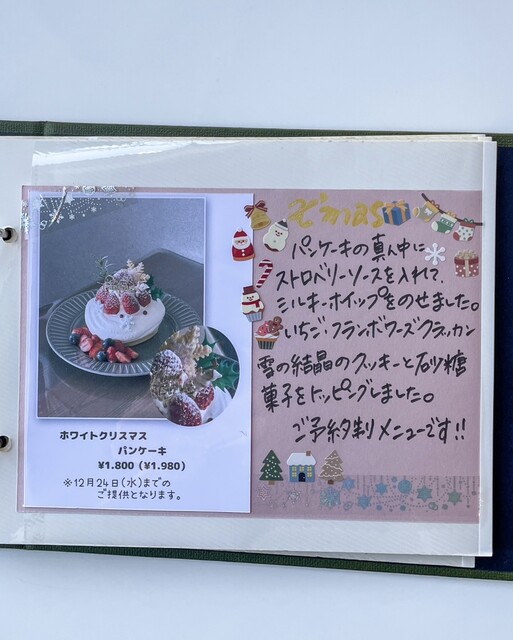 ホワイトクリスマス
パンケーキ
¥1.800(¥1.980)
※12月24日(水)までの
ご提供となります。
X'mas
パンケーキの真ん中に
ストロベリーソースを入れて、
ミルキーホイップをのせました。
いちご・フランボワーズクラッカン
雪の結晶のクッキーと砂糖
菓子をトッピングしました。
ご予約制メニューです!!